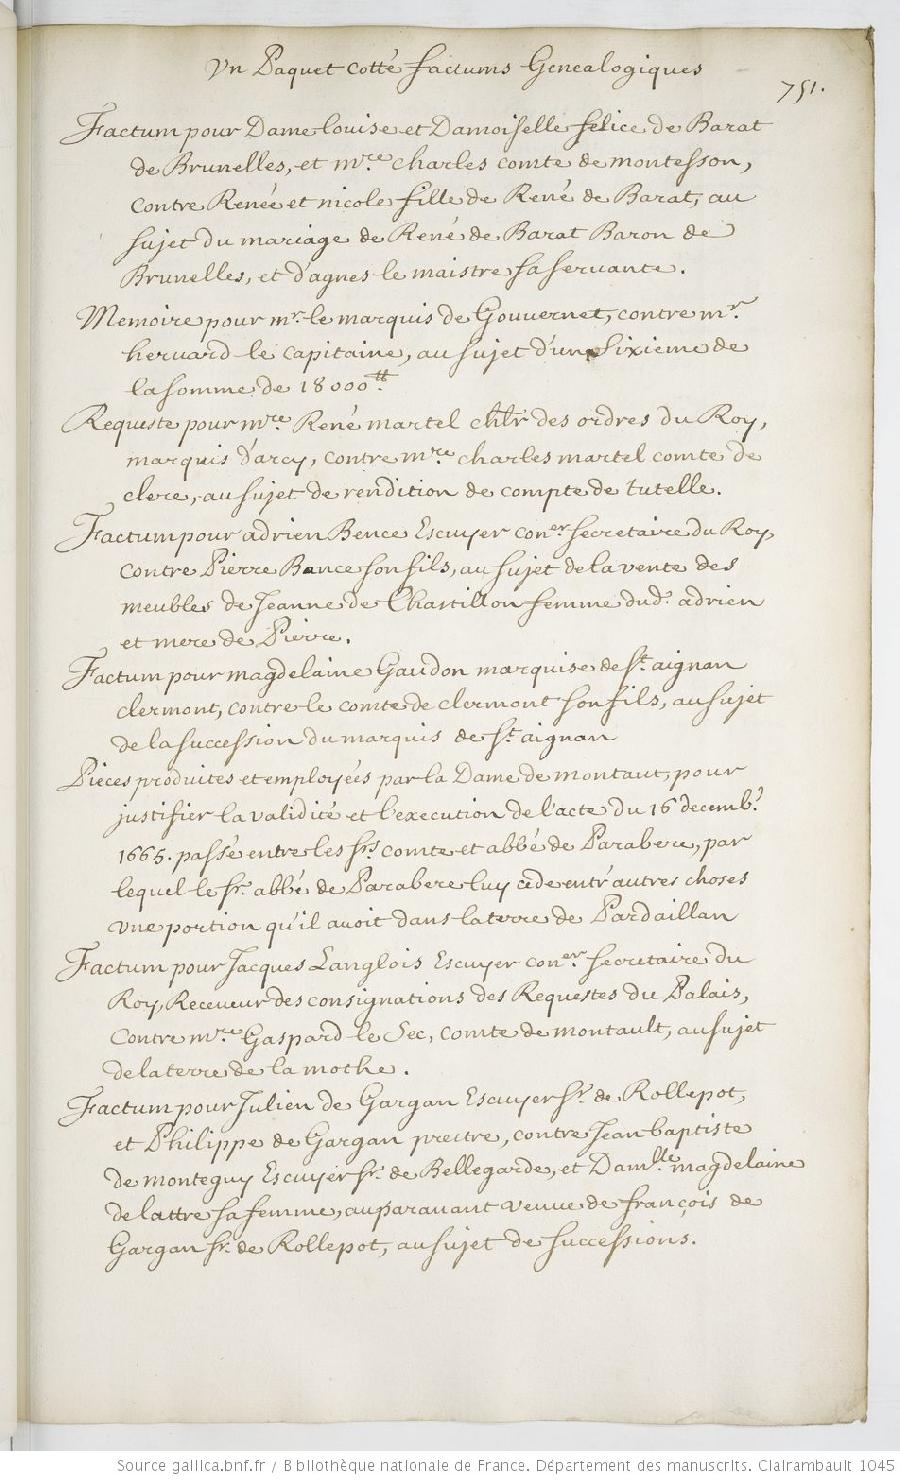 Vn Paquet cotté factums Genealogiques
751.
Factum pour Dame louise et Damoiselle felice de Barat
de Brunelles, et mre. charles comte de montesson,
contre Renée et nicole fille de René de Barat, au
sujet du mariage de René de Barat Baron de
Brunelles, et d'agnes le maistre sa servante.
Memoire pour mr. le marquis de Gouvernet, contre mr.
heruard le capitaine, au sujet d'un sixieme de
la somme de 18000tt.
Requeste pour mre. René martel chlr des ordres du Roy,
marquis d'arcy, contre mre. charles martel comte de
clere, au sujet de rendition de compte de tutelle.
Factum pour adrien Bence Escuyer coner. secretaire du Roy
contre Pierre Bance son fils, au sujet de la vente des
meubles de Jeanne de Chastillon femme dud. adrien
et mere de Pierre.
Factum pour magdelaine Gaudon marquise de St. aignan
clermont, contre le comte de clermont son fils, au sujet
de la succession du marquis de St. aignan
Pieces produites et employées par la Dame de montaut, pour
justifier la validité et l'execution de l'acte du 16 decemb.
1665. passé entre les srs. comte et abbé de Parabere, par
lequel le sr. abbé de Parabere luy cede entr'autres choses
vne portion qu'il auoit dans la terre de Pardaillan
Factum pour Jacques Langlois Escuyer coner. secretaire du
Roy, Receueur des consignations des Requestes du Palais,
contre mre. Gaspard le Sec, comte de montault, au sujet
de la terre de la mothe.
Factum pour Julien de Gargan Escuyer sr. de Rollepot,
et Philippe de Gargan prestre, contre Jean baptiste
de monteguy Escuyer sr. de Bellegarde, et Damlle. magdelaine
de lattre sa femme, auparauant veuue de françois de
Gargan sr. de Rollepot, au sujet de successions.
Source gallica.bnf.fr / Bibliothèque nationale de France. Département des manuscrits. Clairambault 1045